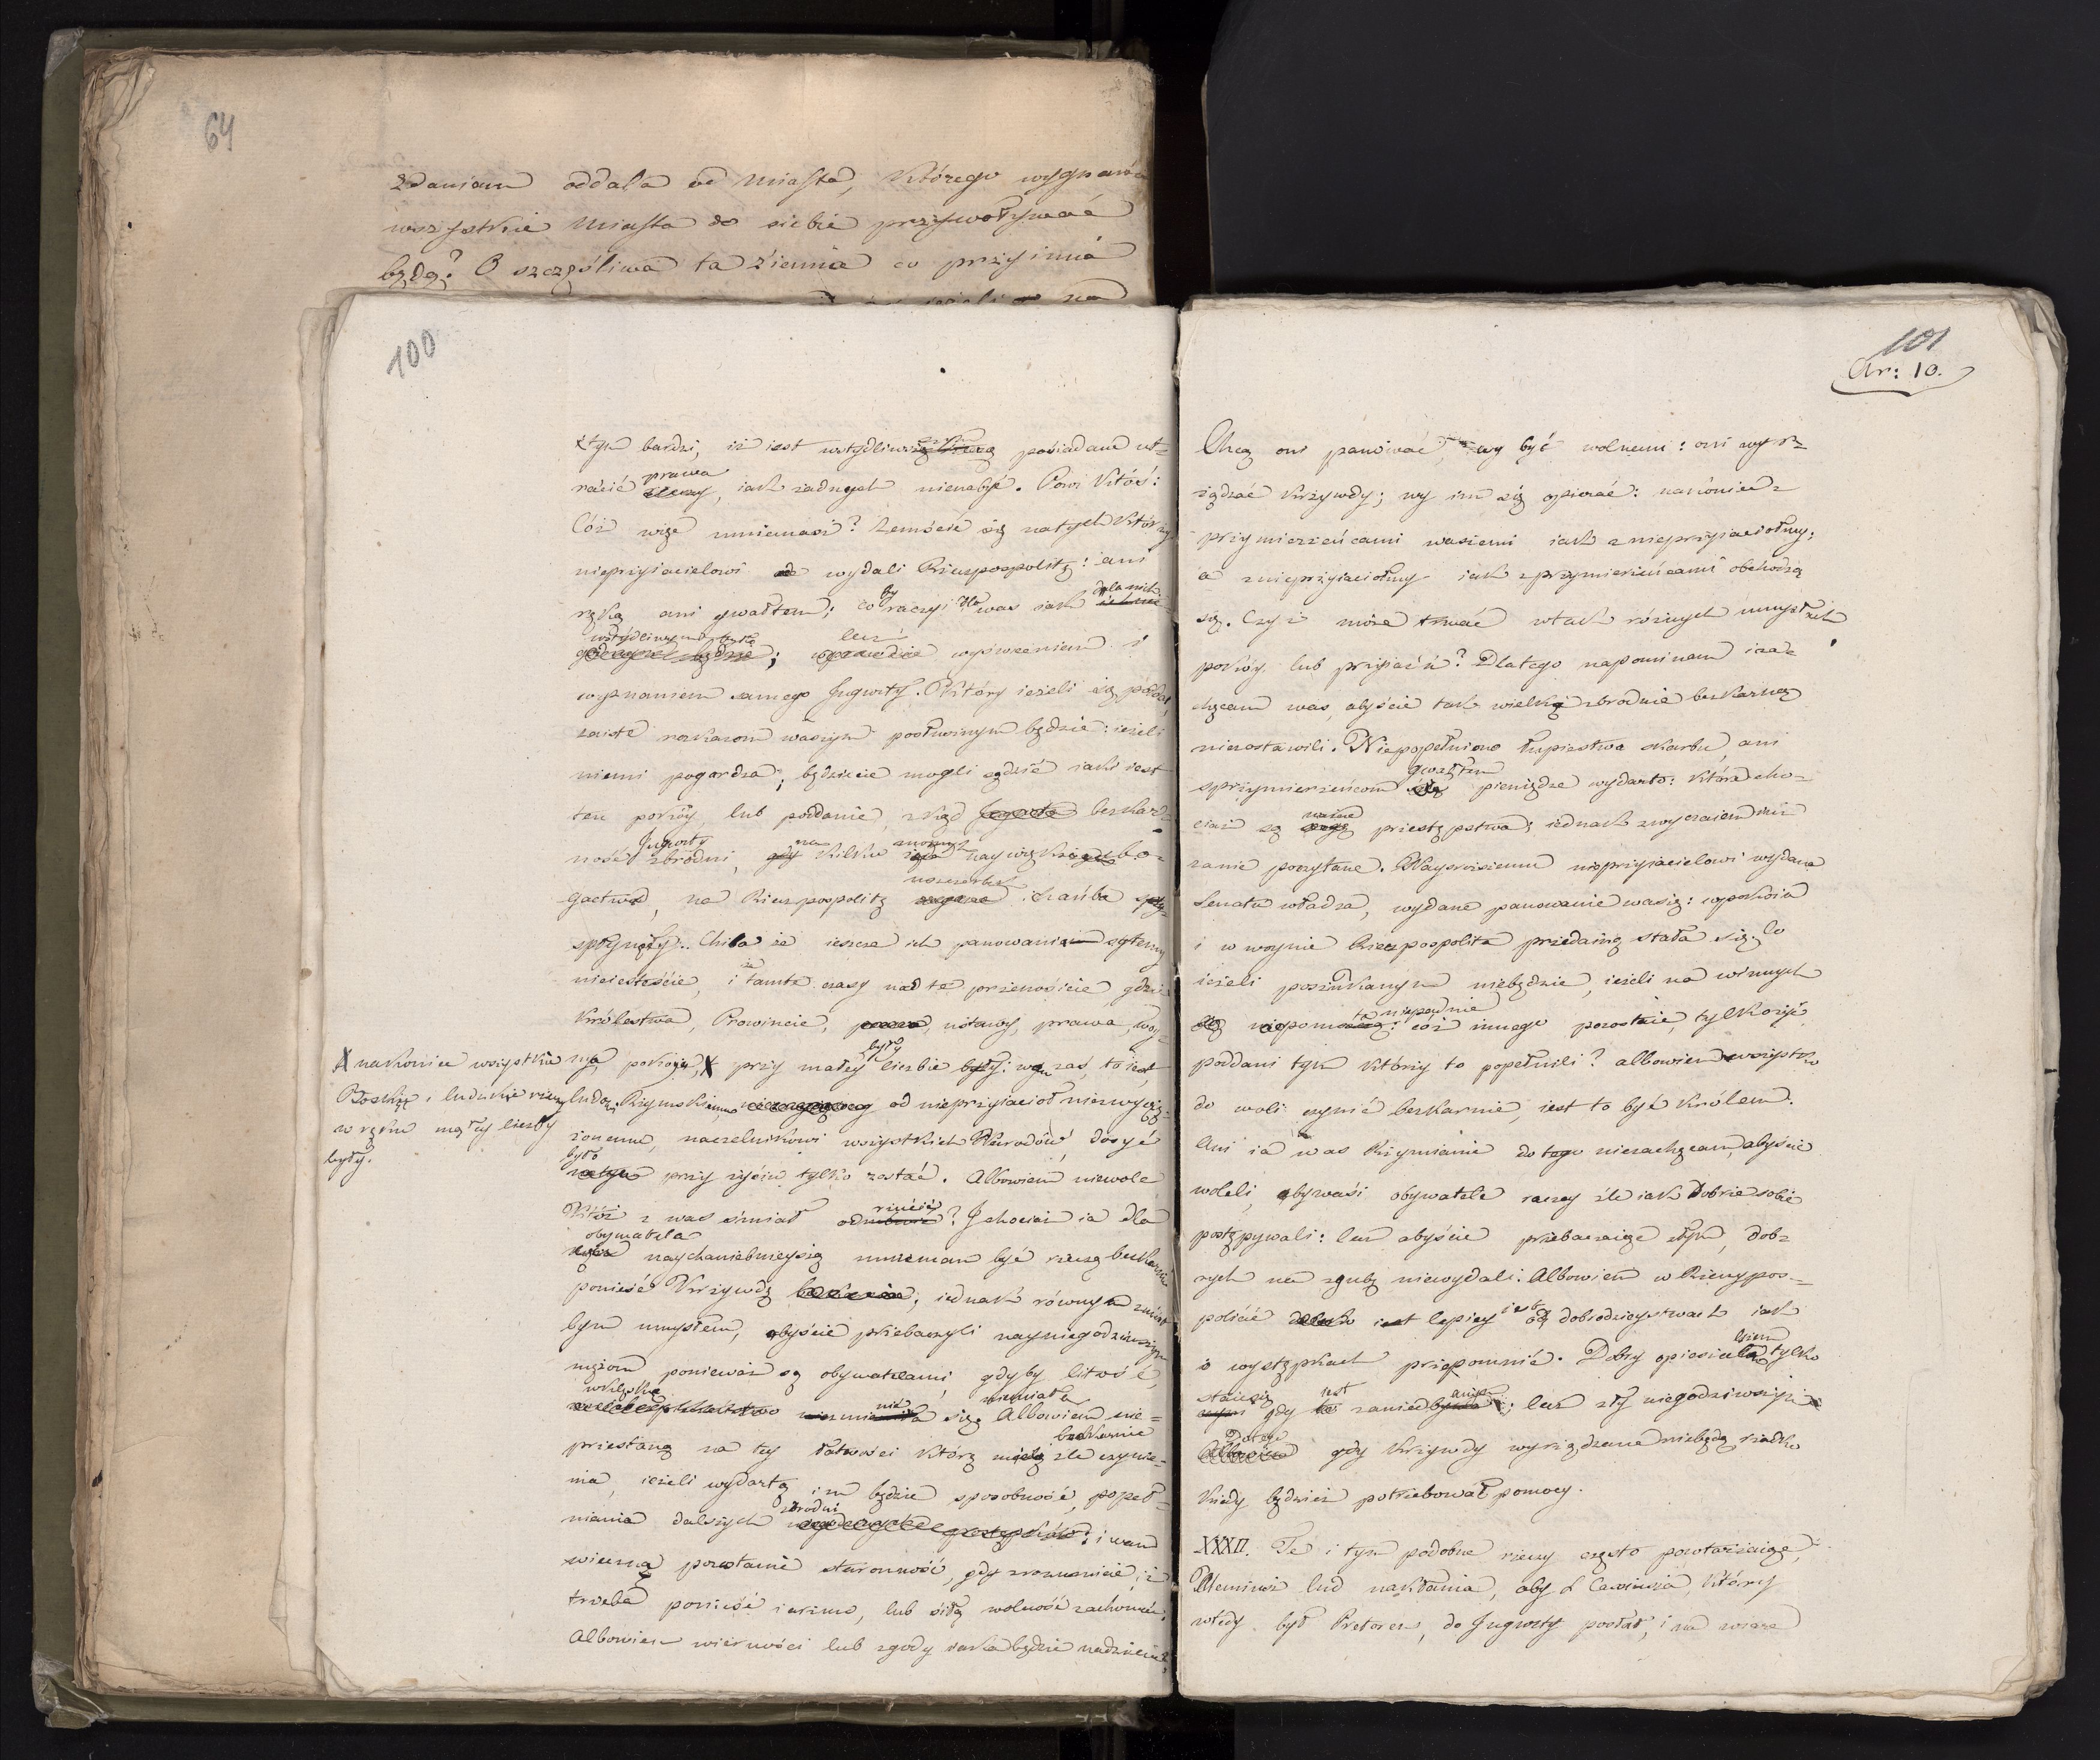 64
zdaniem oddala od Miasta, którego wygnańca
wszystkie Miasta do siebie przywoływać
będą? O szczęśliwa ta ziemia co przyimie
100
i tym bardzi, iż iest wstydliwszą posiadane ut=
racić prawa rzeczy, iak żadnych nienabyć. Powi któś:
Cóż więc mniemasz? Zemścić się na tych którzy
nieprzyiacielowi wydali Rzeczpospolitę: ani
ręką ani gwałtem; co by raczyi dla was iak dla nich
wstydliwym lecz wyświeceniem i
wyznaniem samego Jugurty. Który ieżeli się poddał,
zaiste roskazom waszym posłusznym będzie: ieżeli
niemi pogardza; będziecie mogli sądzić iaki iest
ten pokóy, lub poddanie, zkąd Jugurta bezkar=
ność Jugurty zbrodni, gdy kilku możnych naywiększe bo=
gactwa, na Rzeczpospolitę uszczerbek i hańba
spłynęły. Chiba że ieszcze ich panowaniem sytemi
nieiesteście, i że tamte czasy nad te przenosicie, gdzie
Królestwa, Prowincie, ustawy, prawa, woy=
X nakoniec wszystkie
Boskie i ludzkie rzeczy
w ręku małey liczby
były.
ny, pokoie, X przy małey liczbie były: wy zaś, to iest,
lud Rzymski od nieprzyiacioł niezwycię=
żonemu, naczelnikowi wszystkich Narodów, dosyć
było przy życiu tylko zostać. Albowiem niewole
Któż z was śmiał odrzucić? I chociaż ia dla
obywatela nayhaniebnieyszą mniemam być rzeczą bezkarnie
ponieść krzywdę; iednak równym zniósł
bym umysłem, abyście przebaczyli nayniegodziwszym
mężom ponieważ są obywatelami, gdyby litość,
w klęskę nie zmieniała się. Albowiem nie=
przestaną na tey łatwości którą maią bezkarnie źle czynie=
nia, ieżeli wydartą im będzie sposobność, popeł=
niania dalszych zbrodni; i wam
wieczna pozostanie staronność, gdy zrozumicie, iż
trzeba ponieść iarzmo, lub siłą wolność zachować.
Albowiem wierności lub zgody iaka będzie nadzieia?
101
Ar: 10.
Chcą oni panować, wy być wolnemi: oni wyr=
ządzać krzywdy; wy im się opierać: nakoniec z
przymierzeńcami waszemi iak z nieprzyiaciołmy,
a z nieprzyiaciołmy iak z przymierzeńcami obchodzą
się. Czyż może trwać w tak różnych umysłach
pokóy lub przyiaźń? Dlatego napominam i za=
chęcam was, abyście tak wielką zbrodnie bezkarną
niezostawili. Niepopełniono łupiestwa skarbu, ani
sprzymierzeńcom gwałtem pieniądze wydarto: które cho=
ciaż są ważne przestępstwa; iednak zwyczaiem
zanie poczytane. Naysroższemu nieprzyiacielowi wydana
Senatu władza, wydane panowanie wasze: w pokoiu
i w woynie Rzeczpospolita przedainą stała się. Co
ieżeli poszukanym niebędzie, ieżeli na winnych
to niepewnie cóż innego pozostaie, tylko żyć
poddani tym którzy to popełnili? albowiem wszystko
do woli czynić bezkarnie, iest to być królem.
Ani ia was Rzymianie do tego niezachęcam, abyście
woleli, aby waśi obywatele raczey źle iak dobrze sobie
postępywali: lecz abyście przebaczaiąc złym, dob=
rych na zgubę niewydali. Albowiem w Rzeczypos=
policie lepiey iest o dobrodzieystwach iak
o występkach przepomnić. Dobry opieszalszym tylko
staie się gdy iest zaniedbanym; lecz zły niegodziwszym
Dotego gdy krzywdy wyrządzane niebędą rzadko
kiedy będziesz potrzebował pomocy.
XXXII. Te i tym podobne rzeczy często powtarzaiąc,
Memiusz lud nakłania, aby L Cassiusza, który
wtedy był Pretorem, do Jugurty posłał, i na wiarę